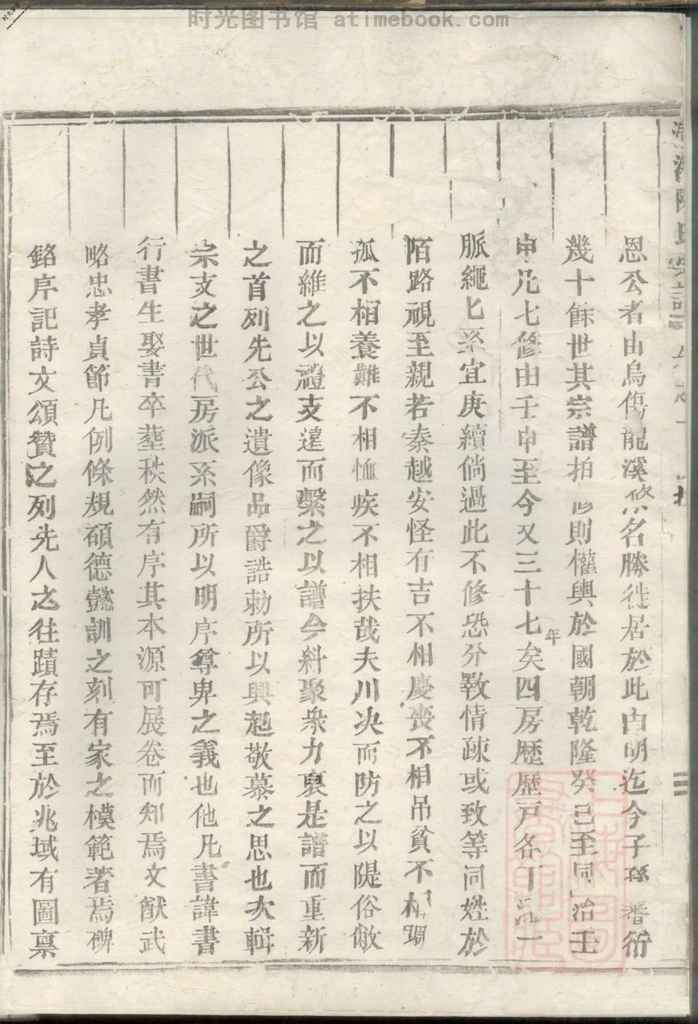 时光图书馆 atimebook.com
恩公者由烏傷龍溪
名勝徙居於此由明迄今子孫潘衍
幾十餘世其宗譜
修則權輿於國朝乾隆癸巳至同治壬
申凡七修由壬申至今又三十七年矣四房歷歷戶各丁
一
脈繩匕系宜庚續倘過此不修恐分致情疎或致等同姓於
陌路視至親若秦越安怪有吉不相慶喪不相吊貧不相賙
孤不相養難不相恤疾不相扶哉夫川决而防之以隄俗敝
而維之以禮支遠而繫之以譜今糾聚衆力裒是譜而重新
之首列先公之遺像品爵誥勅所以興起敬慕之思也次輯
宗支之世代房派系嗣所以明序尊卑之義也他凡書諱書
行書生娶書卒塟秩然有序其本源可展卷而知焉文猷武
略忠孝貞節凡例條規碩德懿訓之刻有家之模範著焉碑
銘序記詩文頌贊之列先人之往蹟存焉至於兆域有圖禀